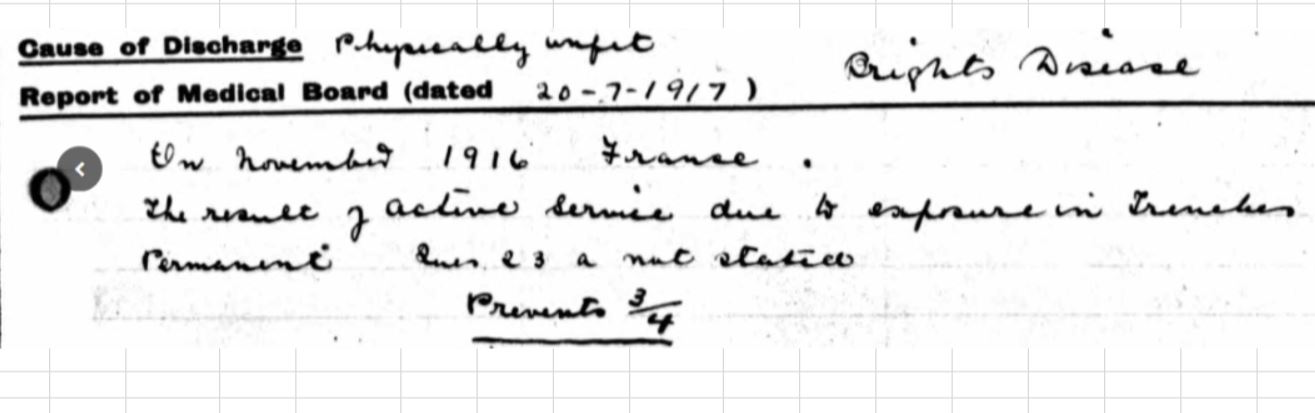 Cause of Discharge Physically unfit Brights Disease
Report of Medical Board (dated 20-7-1917)
In November 1916 France.
The result of active service due to exposure in Trenches
Permanent Ques 23 a not stated
Prevents 3/4